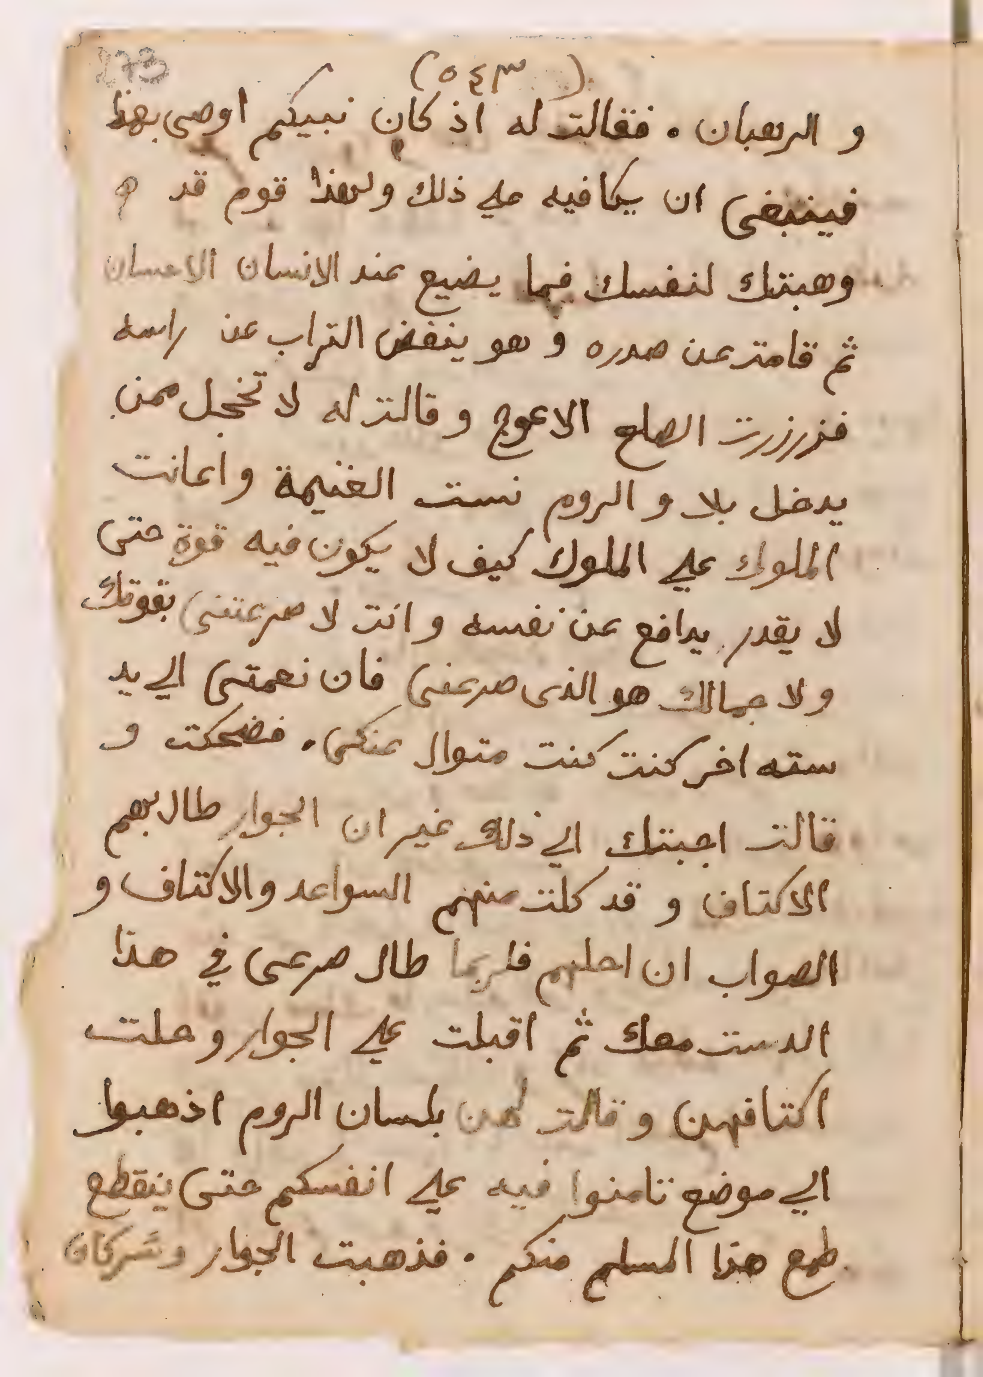 273
(٥٤٣)
و الرهبان . فقالت له اذ كان نبيكم اوصى بهذا
فينبغى ان يكافيه علي ذلك ولهذا قوم قد
وهبتك لنفسك فما يضيع عند الانسان الاحسان
ثم قامت عن صدره و هو ينفض التراب عن راسه
الاعوج و قالت له لا تخجل ممن
يدخل بلاد الروم الغنيمة و اعانت
الملوك علي الملوك كيف لا يكون فيه قوة حتى
لا يقدر يدافع عن نفسه و انت لا صرعتنى بقوتك
و لا جمالك هو الذى صرعنى فان نعمتى الي يد
سته اخر كنت كنت متوال عنكى . فضحكت و
قالت اجبتك الي ذلك غير ان الجوار طال بهم
الاكتاف و قد كلت منهم السواعد والاكتاف و
الصواب ان احلهم فلربما طال صرعى في هذا
الدست معك ثم اقبلت علي الجوار و حلت
اكتافهن و قالت لهن بلسان الروم اذهبوا
الي موضع تامنوا فيه علي انفسكم حتى ينقطع
طمع هذا المسلم منكم . فذهبت الجوار وشركان